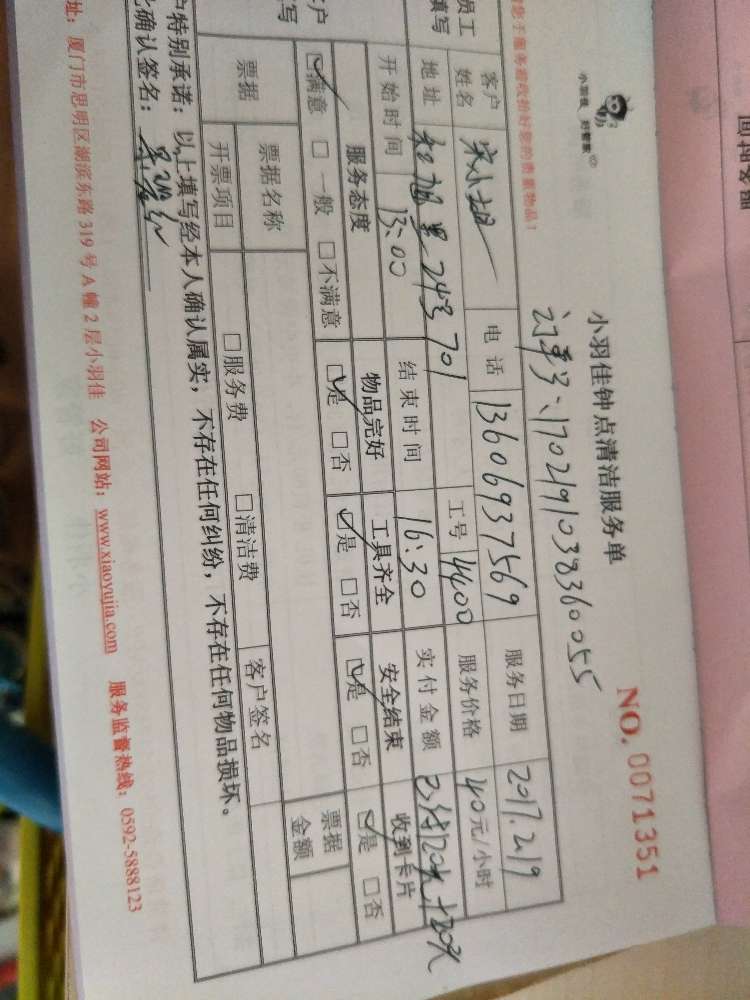 小羽佳 好管家
小羽佳钟点清洁服务单
NO. 0071351
订单号:1702191038360055
您于服务前收拾好您的贵重物品!
员工
填写
客户姓名 宋小姐 电话 13606937569 服务日期 2017.2.19
地址 243 701 工号 4400 服务价格 40元/小时
开始时间 13:00 结束时间 16:30 实付金额 已付120元+20元
客户
填写
服务态度 物品完好 工具齐全 安全结束 收到卡片
☑满意 □一般 □不满意 ☑是 □否 ☑是 □否 ☑是 □否 ☑是 □否
票据 票据名称 票据金额
开票项目 □服务费 □清洁费 客户签名
户特别承诺:以上填写经本人确认属实,不存在任何纠纷,不存在任何物品损坏。
确认签名:
址:厦门市思明区湖滨东路319号A幢2层小羽佳 公司网站:www.xiaoyujia.com 服务监督热线:0592-5888123